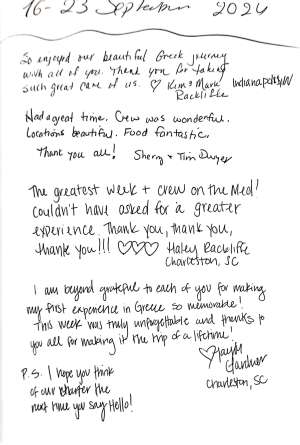 16-23 September 2024
So enjoyed our beautiful Greek journey
with all of you. Thank you for taking
such great care of us. ♡ Kim & Mark Indianapolis, IN
Radcliffe
Had a great time. Crew was wonderful.
Locations beautiful. Food fantastic.
Thank you all! Sherry + Tim Dwyer
The greatest week + crew on the Med!
Couldn't have asked for a greater
experience. Thank you, thank you,
thank you!!! ♡♡♡ Haley Radcliffe
Charleston, SC
I am beyond grateful to each of you for making
my first experience in Greece so memorable!
This week was truly unforgettable and thanks to
you all for making it the trip of a lifetime!
♡ Gardner
Charleston, SC
P.S. I hope you think
of our charter the
next time you say Hello!